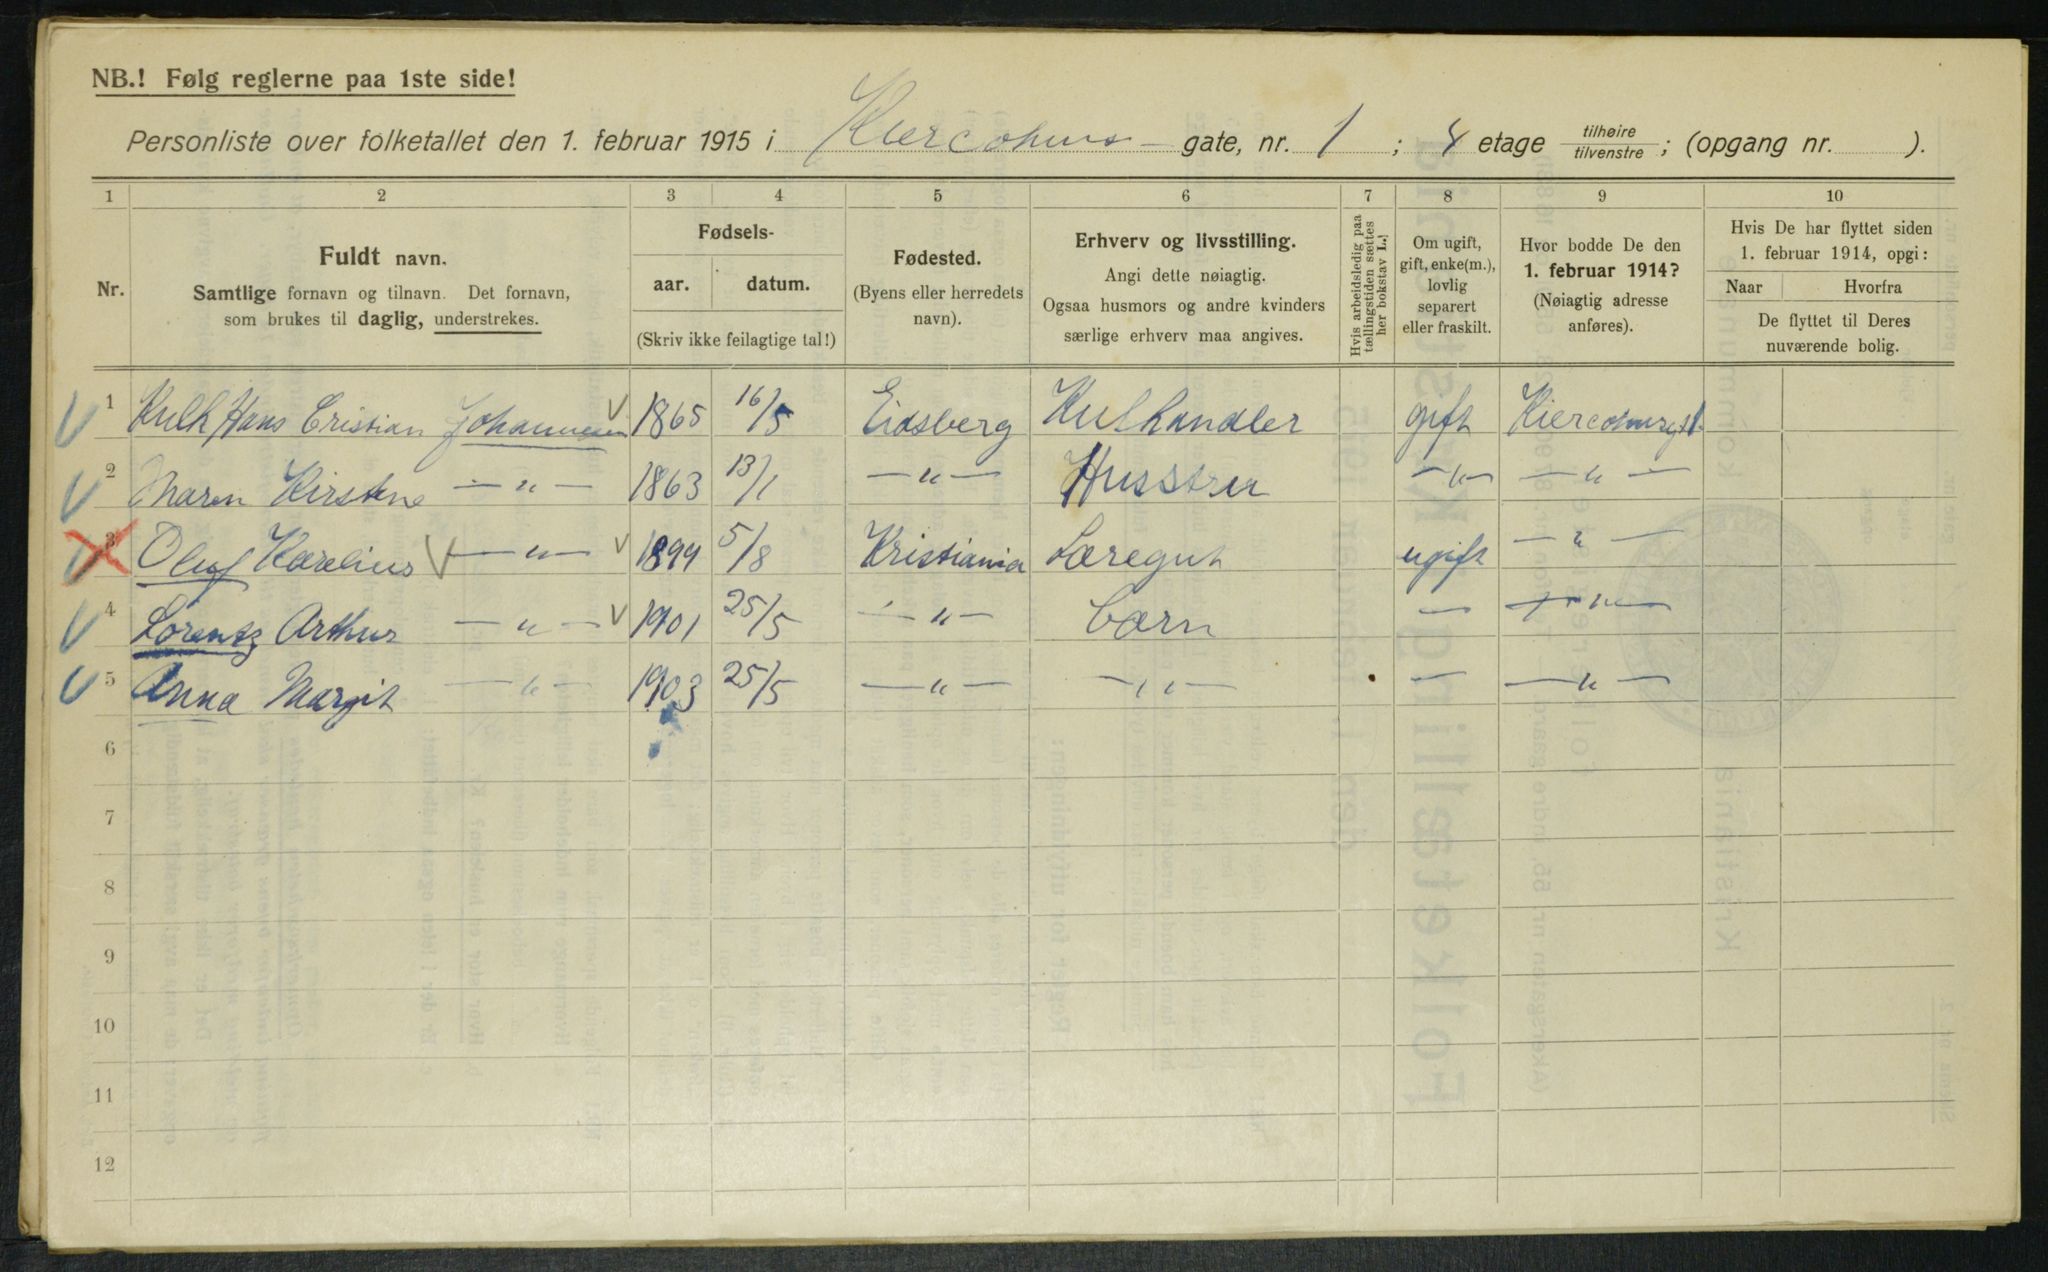 NB.! Følg reglerne paa 1ste side!
Personliste over folketallet den 1. februar 1915 i Kiercohws - gate, nr. 1 ; 4 etage tilhøire tilvenstre ; (opgang nr. ).
1 2 3 4 5 6 7 8 9 10
Nr.
Fuldt navn.
Samtlige fornavn og tilnavn. Det fornavn,
som brukes til daglig, understrekes.
Fødsels-
aar. datum.
(Skriv ikke feilagtige tal!)
Fødested.
(Byens eller herredets
navn).
Erhverv og livsstilling.
Angi dette nøiagtig.
Ogsaa husmors og andre kvinders
særlige erhverv maa angives.
Hvis arbeidsledig paa
tællingstiden sættes
her bokstav L.!
Om ugift,
gift, enke(m.),
lovlig
separert
eller fraskilt.
Hvor bodde De den
1. februar 1914?
(Nøiagtig adresse
anføres).
Hvis De har flyttet siden
1. februar 1914, opgi:
Naar Hvorfra
De flyttet til Deres
nuværende bolig.
1 Kulh Hans Cristian Johannesen 1865 16/5 Eidsberg Kulhandler gift
2 Maren Kirstine — „ — 1863 13/1 — „ — Husstru — „ — — „ —
3 Oluf Karelius — „ — 1899 5/8 Kristiania Læregut ugift — „ —
4 Lorentz Arthur — „ — 1901 25/5 — „ — barn — — „ —
5 Anna Margit — „ — 1903 25/5 — „ — — „ — — — „ —
6
7
8
9
10
11
12